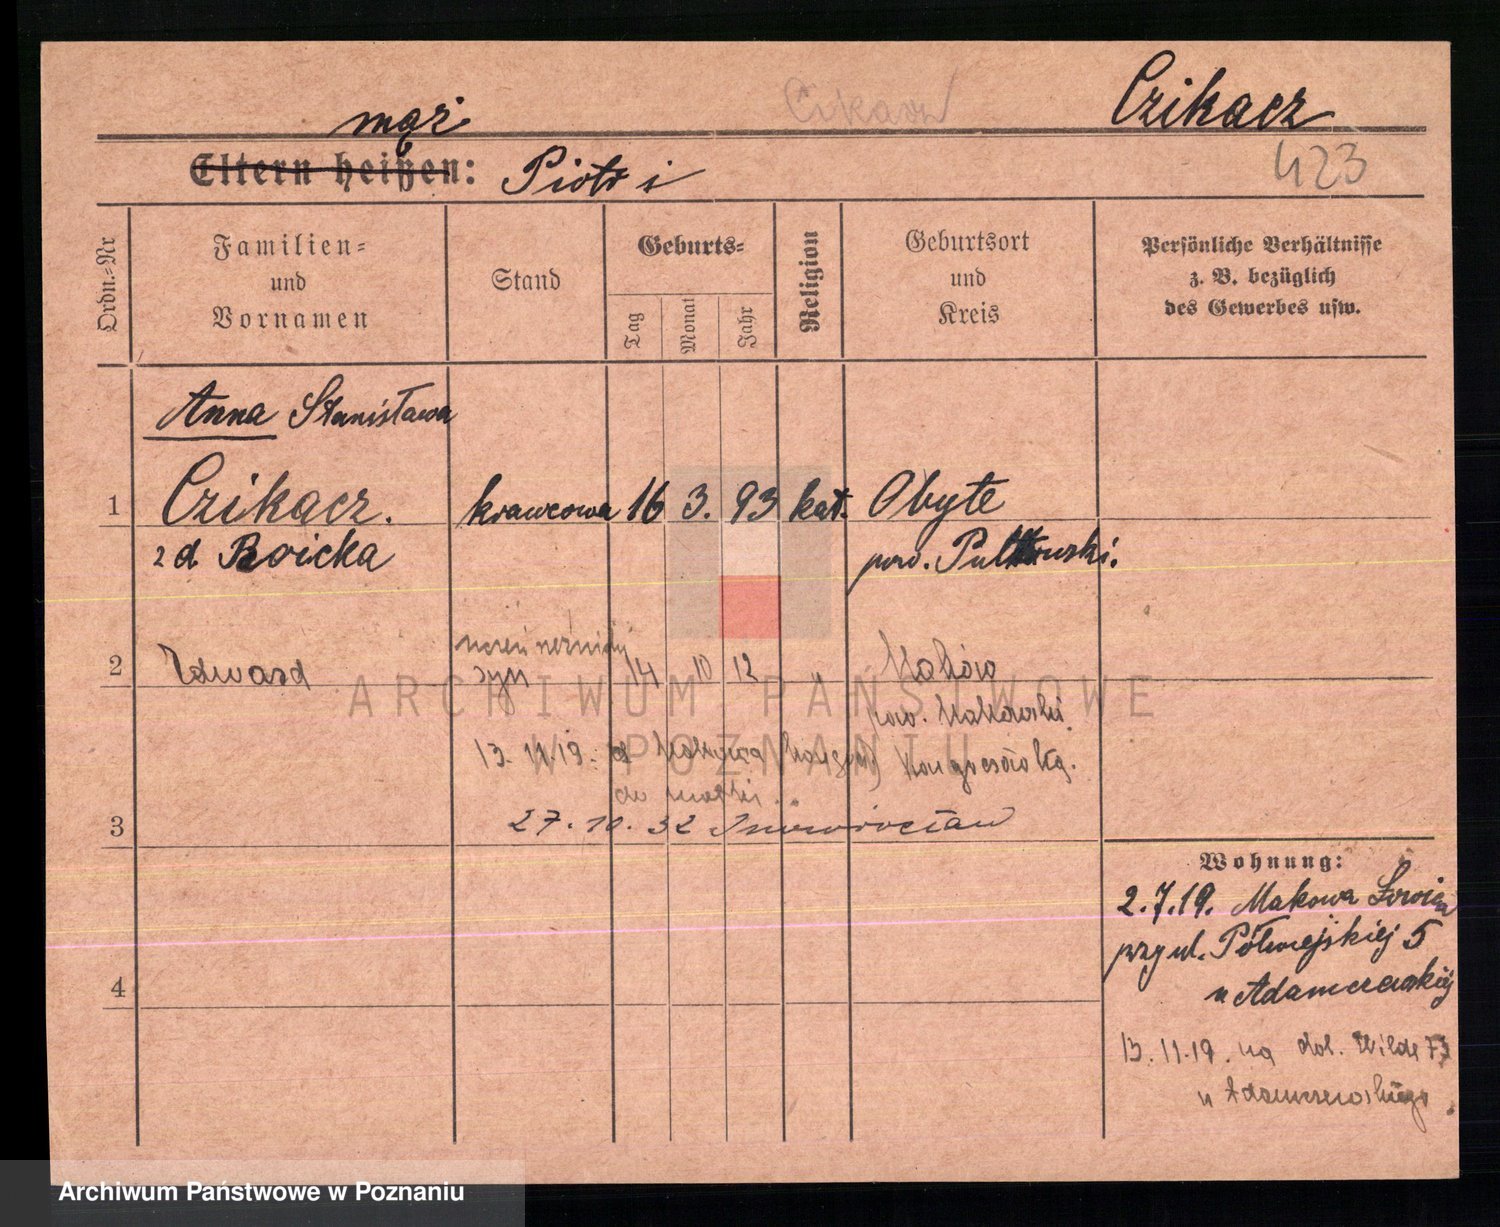 Czikacz
mąż
Eltern heißen: Piotr i
423
Ordn.-Nr
Familien-
und
Vornamen
Stand
Geburts-
Tag
Monat
Jahr
Religion
Geburtsort
und
Kreis
Persönliche Verhältnisse
z. B. bezüglich
des Gewerbes usw.
Anna Stanisława
1 Czikacz. krawcowa 16 3. 93 kat. Obyte
zd Boicka pow. Pułtuski.
uczeń
2 Edward syn 14 10 12 " Maków
pow. Makowski
13. 11. 19. Kongresówka.
do matki
3 27. 10. 32 Inowrocław
Wohnung:
2.7.19. Makowa
przy ul. Półwiejskiej 5
u Adamczewskiej
4
13.11.19. na dol. Wilde
u Adamczewskiego
ARCHIWUM PAŃSTWOWE
W POZNANIU
Archiwum Państwowe w Poznaniu